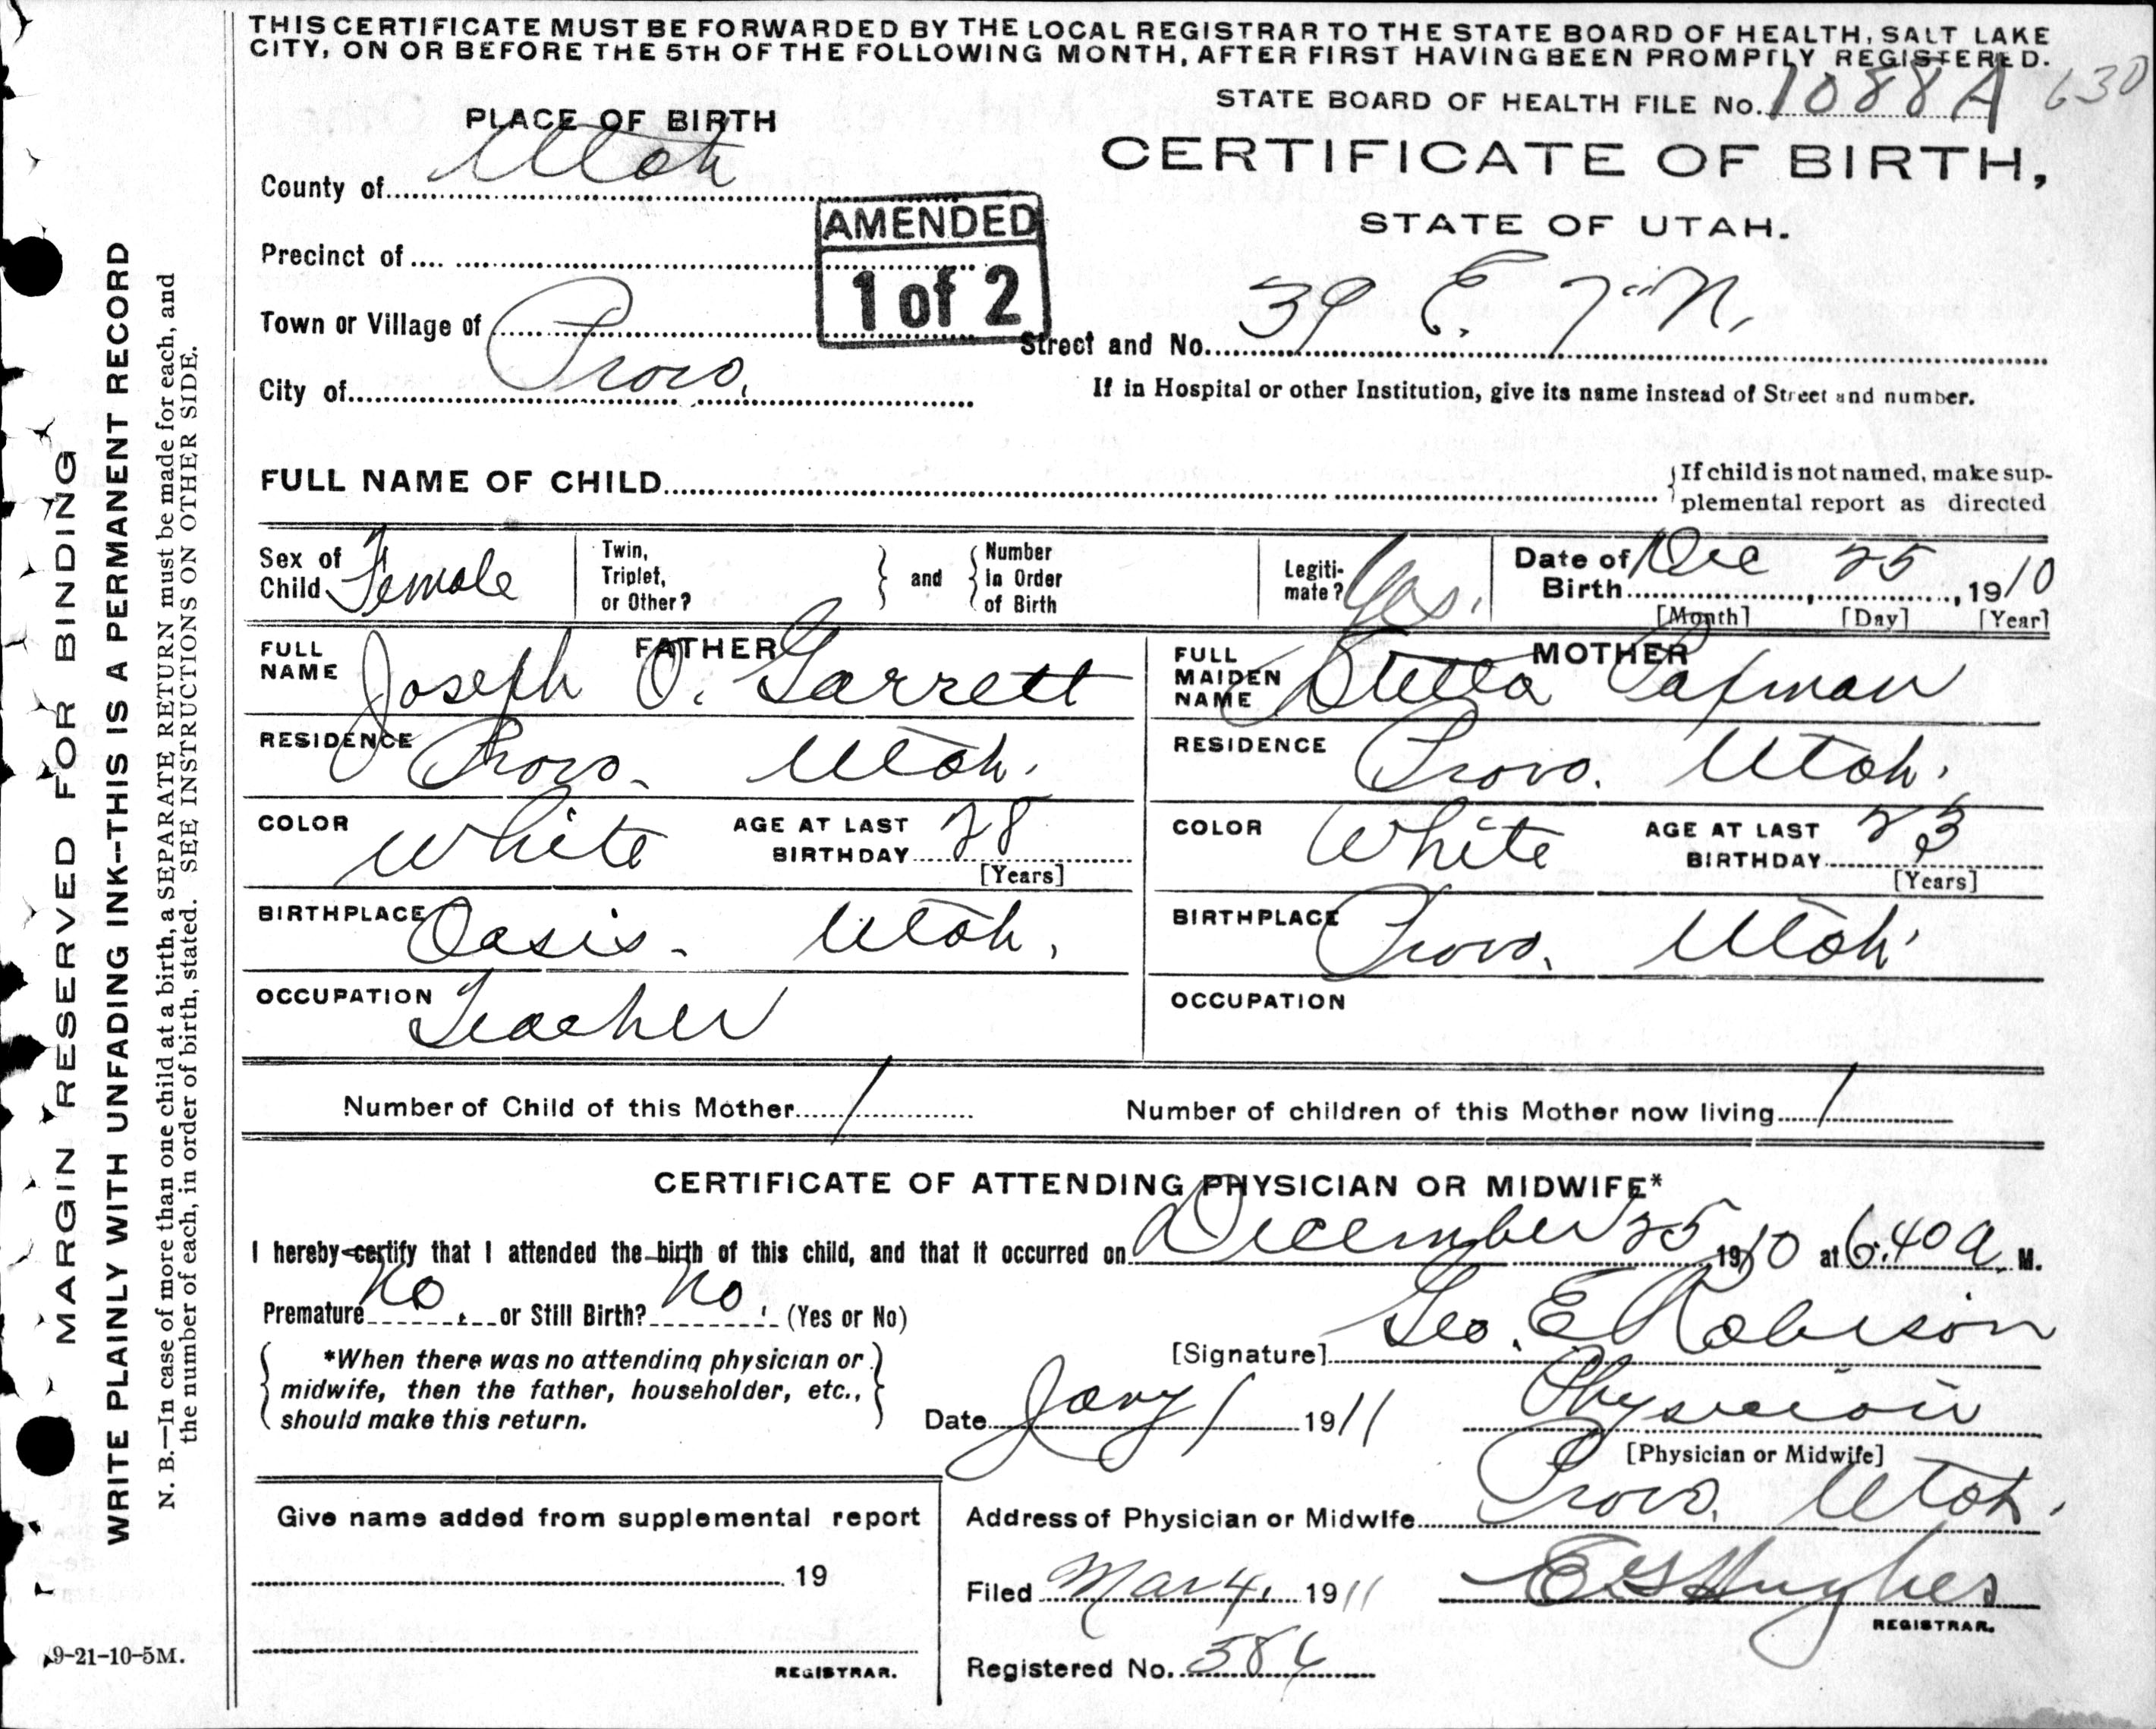 THIS CERTIFICATE MUST BE FORWARDED BY THE LOCAL REGISTRAR TO THE STATE BOARD OF HEALTH, SALT LAKE
CITY, ON OR BEFORE THE 5TH OF THE FOLLOWING MONTH, AFTER FIRST HAVING BEEN PROMPTLY REGISTERED.
STATE BOARD OF HEALTH FILE No. 1088 A 630
PLACE OF BIRTH
CERTIFICATE OF BIRTH,
STATE OF UTAH.
County of Utah
AMENDED
1 of 2
Precinct of
Town or Village of
City of Provo.
Street and No. 39 E. 7" N.
If in Hospital or other Institution, give its name instead of Street and number.
FULL NAME OF CHILD
If child is not named, make sup-
plemental report as directed
Sex of Child Female
Twin, Triplet, or Other? and Number in Order of Birth
Legiti-mate? Yes.
Date of Birth Dec 25, 1910
[Month] [Day] [Year]
FATHER
FULL NAME Joseph O. Garrett
RESIDENCE Provo. Utah.
COLOR White AGE AT LAST BIRTHDAY 28
[Years]
BIRTHPLACE Oasis. Utah.
OCCUPATION Teacher
MOTHER
FULL MAIDEN NAME Stella Paxman
RESIDENCE Provo. Utah.
COLOR White AGE AT LAST BIRTHDAY 23
[Years]
BIRTHPLACE Provo. Utah.
OCCUPATION
Number of Child of this Mother 1
Number of children of this Mother now living 1
CERTIFICATE OF ATTENDING PHYSICIAN OR MIDWIFE*
I hereby certify that I attended the birth of this child, and that it occurred on December 25 1910 at 6:40 a. M.
Premature No. or Still Birth? No. (Yes or No)
*When there was no attending physician or
midwife, then the father, householder, etc.,
should make this return.
[Signature] Geo. E Robison
Date Jany 1 1911
Physician
[Physician or Midwife]
Give name added from supplemental report
19
REGISTRAR.
Address of Physician or Midwife Provo, Utah.
Filed Mar 4, 1911 Hughes
REGISTRAR.
Registered No. 586
9-21-10-5M.
MARGIN RESERVED FOR BINDING
WRITE PLAINLY WITH UNFADING INK--THIS IS A PERMANENT RECORD
N. B.—In case of more than one child at a birth, a SEPARATE RETURN must be made for each, and
the number of each, in order of birth, stated. SEE INSTRUCTIONS ON OTHER SIDE.